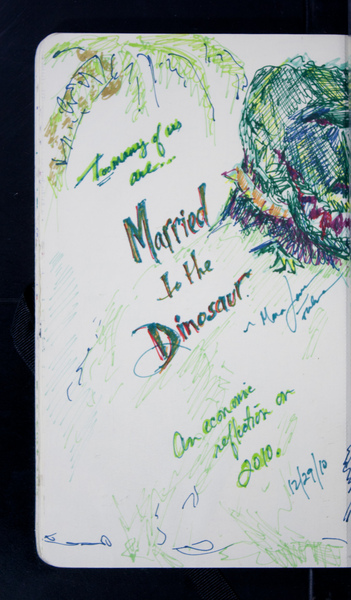 Too many of us
are...
Married
to the
Dinosaur
An economic
reflection on
2010.
12/29/10